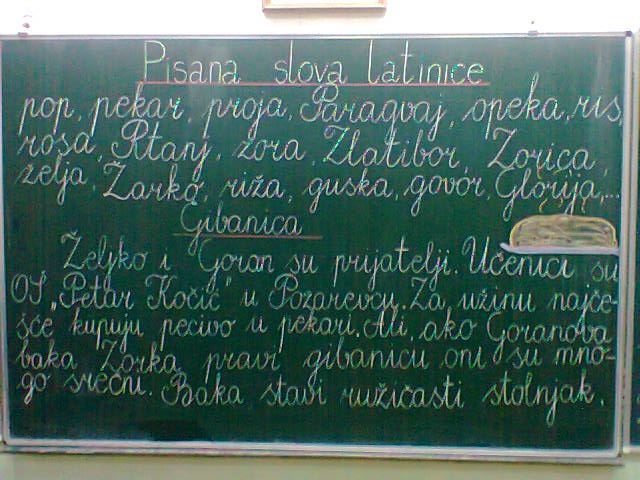 Pisana slova latinice
pop, pekar, proja, Paragvaj, opeka, ris,
rosa, Rtanj, zora, Zlatibor, Zorica,
želja, Žarko, riža, guska, govor, Glorija,...
Gibanica
Željko i Goran su prijatelji. Učenici su
OŠ „Petar Kočić" u Požarevcu. Za užinu najče-
šće kupuju pecivo u pekari. Ali, ako Goranova
baka Zorka pravi gibanicu oni su mno-
go srećni. Baka stavi ružičasti stolnjak.